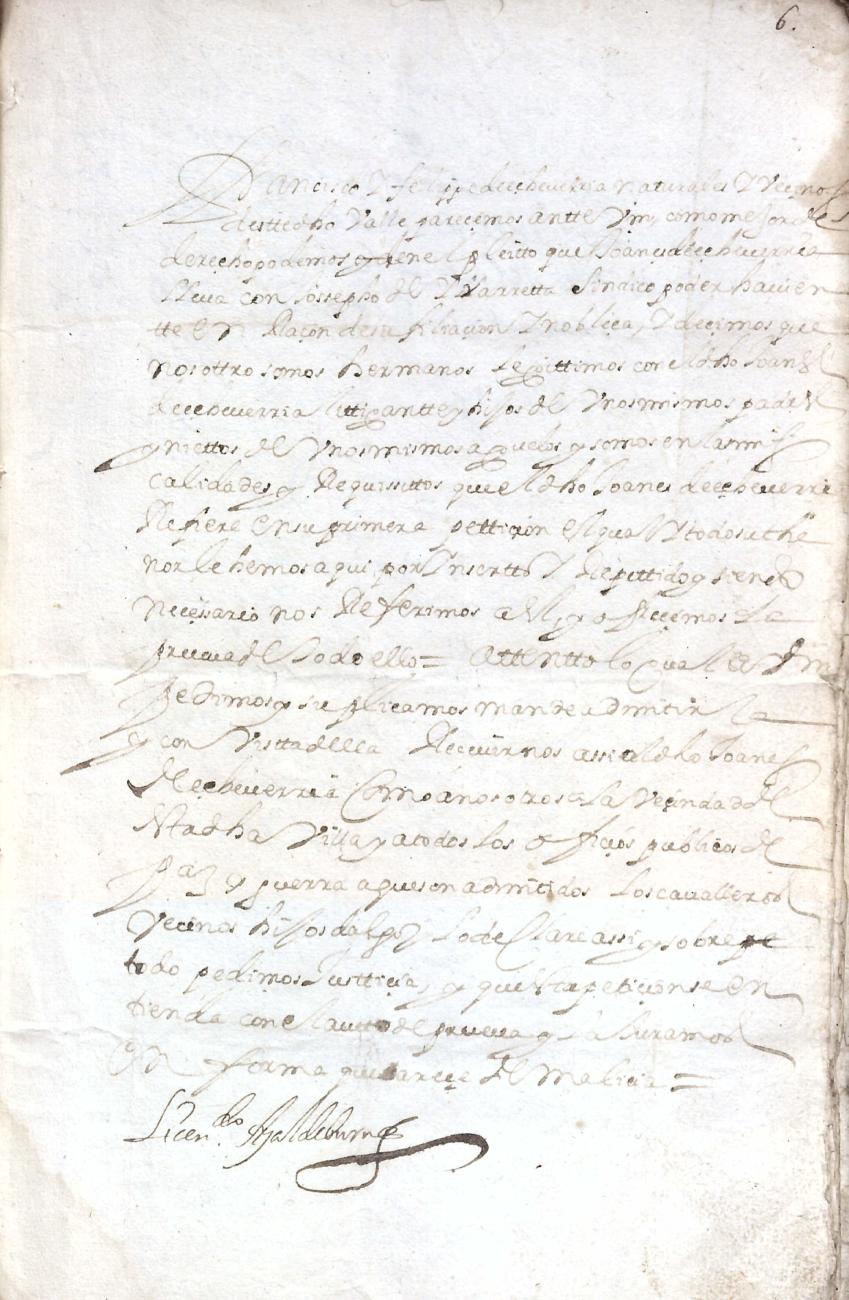 6.
Francisco Y felippe de echeverria naturales Y veçinos
destte dho Valle, pareçemos antte Vm, como mejor de
derecho podemos en el pleitto que Joanes de echeverria
lleva con Jossepho de Yriarretta Sindico poder havien
tte en Raçon de su filiaçion Y nobliça, Y deçimos que
nosottro somos hermanos lexittimos con el dho Joanes
de echeverria littigantte y hijos de Unos mismos padres
y niettos de Unos mismos aguelos y somos en las mis
calidades y Requissittos que el dho Joanes de echeverria
Refiere en su primera pettiçion el qual Y todo su the
nor le hemos aqui por Ynsertto Y Repettido y siendo
neçessario nos Referimos a el, y ofreçemos la
prueva de todo ello = Attentto lo qual a Vm
pedimos y suplicamos mande admitir la
y con vistta della Reçevirnos assi al dho Joanes
de echeverria Como â nosotros a la Veçindad de
sta dha Villa y a todos los ofiçios publicos de
paz y guerra a que son admitidos los cavalleros
Veçinos hijos dalgo, lo declare assi y sobre
todo pedimos Justtiçia, y que esta petiçion se en
tienda con el auto de prueva y la Juramos
en forma que careçe de maliçia =
Licen.do